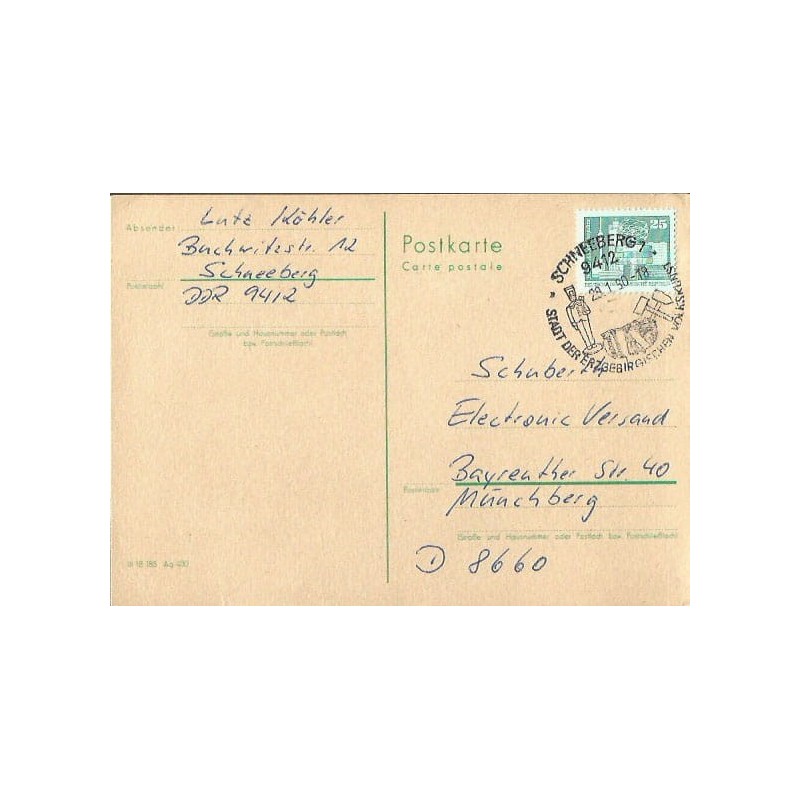 Absender
Lutz Köhler
Buchwitzstr. 12
Schneeberg
Postleitzahl
DDR 9412
Straße und Hausnummer oder Postfach
bzw. Postschließfach
III 18 185 Ag 400
Postkarte
Carte postale
25
SCHNEEBERG 1
9412
29.1.90-18
STADT DER ERZGEBIRGISCHEN VOLKSKUNST
Schuberth
Electronic Versand
Bayreuther Str. 40
Postleitzahl
Münchberg
Straße und Hausnummer oder Postfach bzw. Postschließfach
D 8660